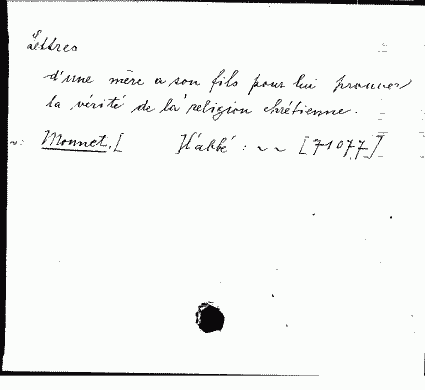 Lettres
d'une mère a son fils pour lui prouver
la vérité de la religion chrétienne.
~: Monnet, [ l'abbé : ~ ~ [71077]